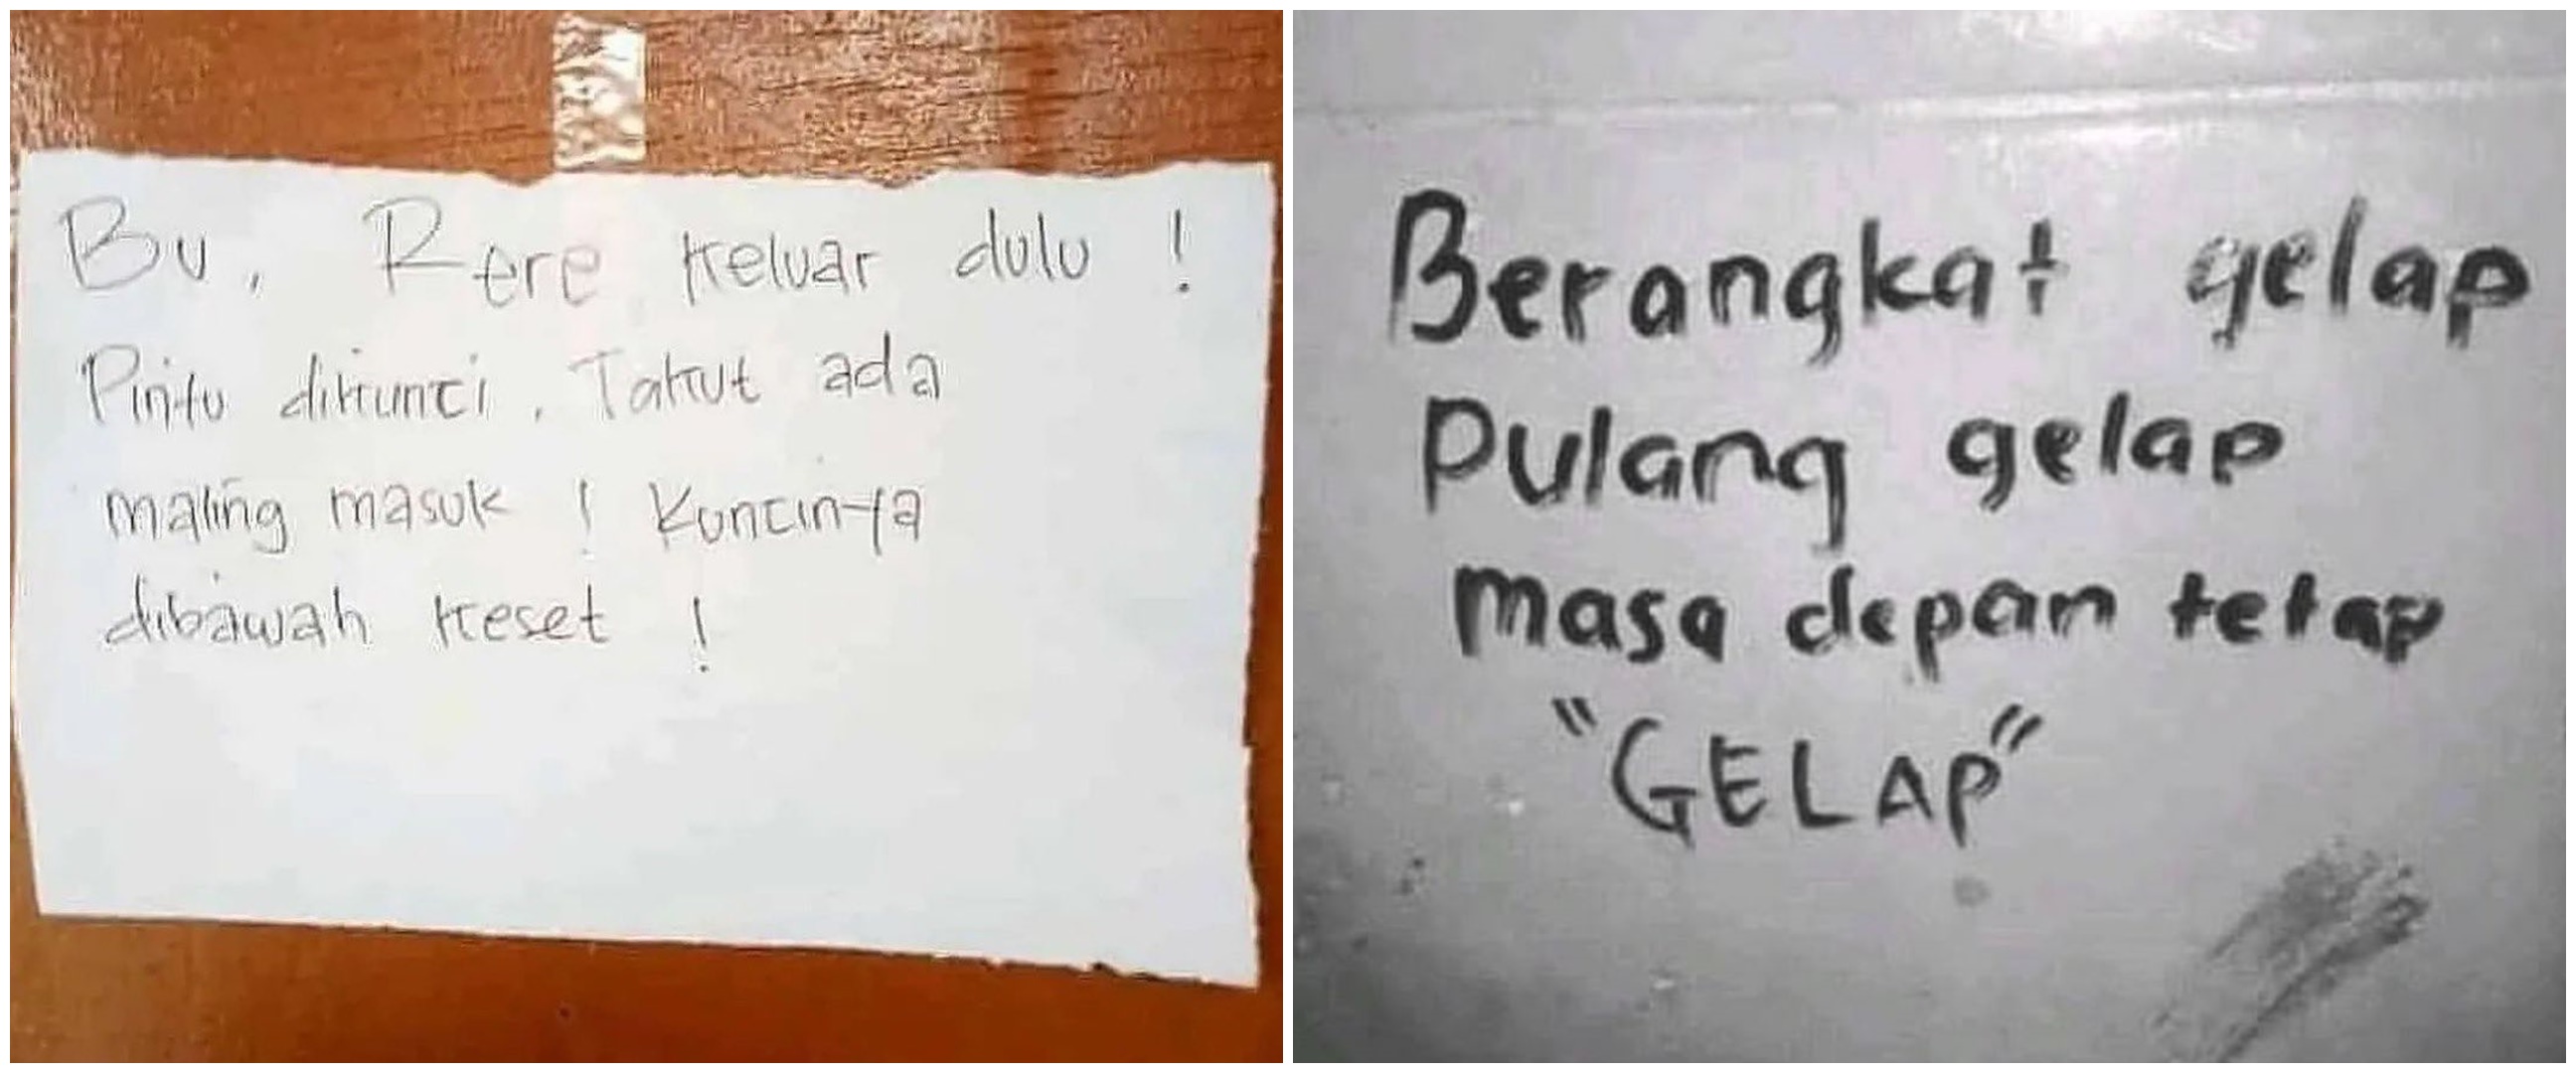 Bu, Rere keluar dulu !
Pintu dikunci, Takut ada
maling masuk ! Kuncinya
dibawah keset !
Berangkat gelap
Pulang gelap
masa depan tetap
"GELAP"